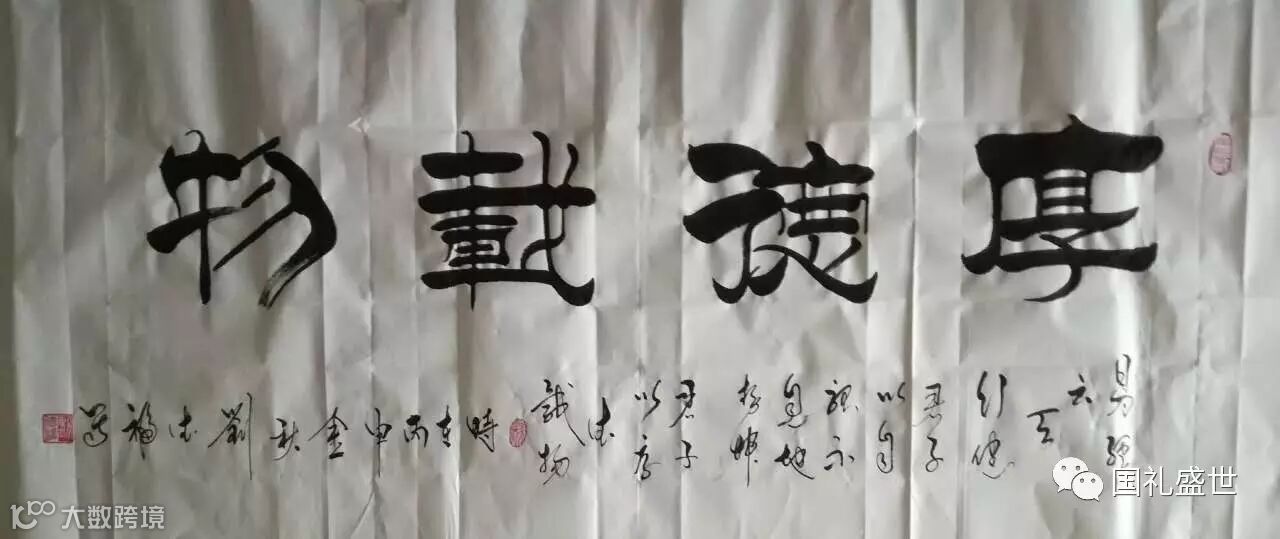 厚德載物
易經
云
天
行健
君子
以自
强不
息地
势坤
君子
以厚
德
载物
時在丙申金秋劉德福
国礼盛世
大数跨境